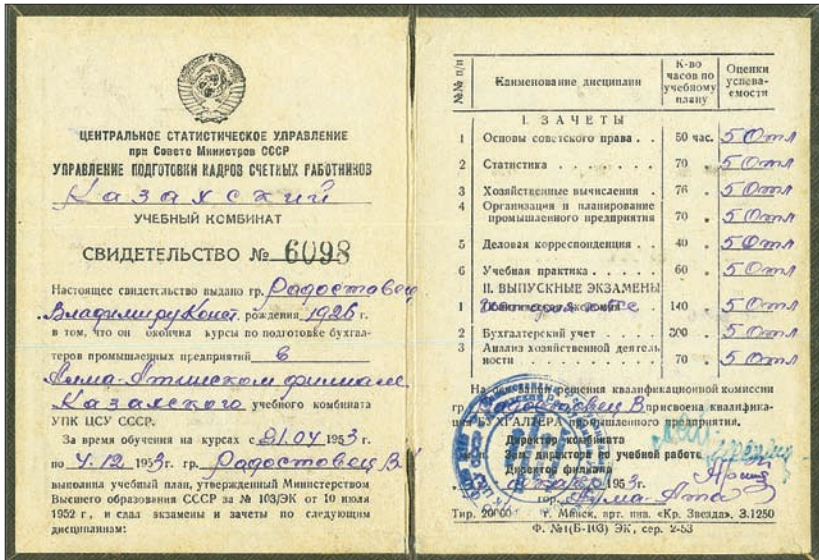 ЦЕНТРАЛЬНОЕ СТАТИСТИЧЕСКОЕ УПРАВЛЕНИЕ
при Совете Министров СССР
УПРАВЛЕНИЕ ПОДГОТОВКИ КАДРОВ СЧЕТНЫХ РАБОТНИКОВ
Казахский
УЧЕБНЫЙ КОМБИНАТ
СВИДЕТЕЛЬСТВО № 6098
Настоящее свидетельство выдано гр. Радостовец
Владимиру Конст. рождения 1926 г.
в том, что он окончил курсы по подготовке бухгал-
теров промышленных предприятий в
Алма-Атинском филиале
Казахского учебного комбината
УПК ЦСУ СССР.
За время обучения на курсах с 21.04 1953 г.
по 4.12 1953 г. гр. Радостовец В
выполнил учебный план, утвержденный Министерством
Высшего образования СССР за № 103/ЭК от 10 июля
1952 г., и сдал экзамены и зачеты по следующим
дисциплинам:
№№ п/п Наименование дисциплин К-во часов по учебному плану Оценки успева-емости
I. ЗАЧЕТЫ
1 Основы советского права . . 50 час. 5 Отл
2 Статистика . . . . . . . 70 „ 5 Отл
3 Хозяйственные вычисления . 76 „ 5 Отл
4 Организация и планирование
промышленного предприятия 70 „ 5 Отл
5 Деловая корреспонденция . . . 40 „ 5 Отл
6 Учебная практика . . . . 60 „ 5 Отл
II. ВЫПУСКНЫЕ ЭКЗАМЕНЫ
1 140 5 Отл
2 Бухгалтерский учет . . . 300 „ 5 Отл
3 Анализ хозяйственной деятель
ности . . . . . . . 70 „ 5 Отл
На основании решения квалификационной комиссии
гр. Радостовец В. присвоена квалифика-
ция БУХГАЛТЕРА промышленного предприятия.
Директор комбината
Зам. директора по учебной работе
Директор филиала
декабря 1953 г.
гор. Алма-Ата
Тир. 20000 г. Минск, арт. пив. «Кр. Звезда». З.1250
Ф. №1(Б-103) ЭК, сер. 2-53